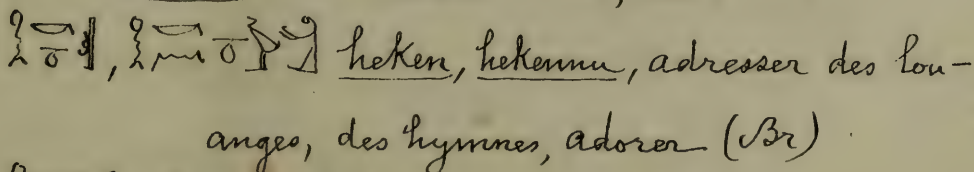 heken, hekennu, adresser des lou-
anges, des hymnes, adorer (Br)